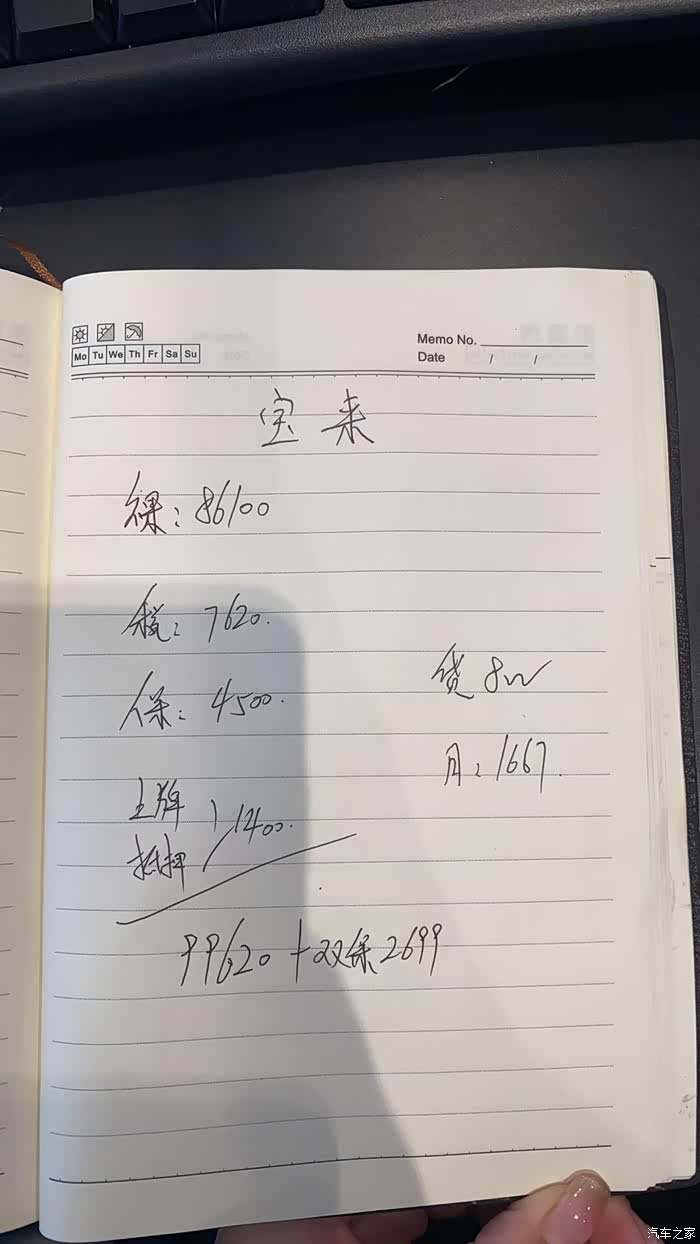 Mo Tu We Th Fr Sa Su
Memo No.
Date / /
宝来
裸：86100
税：7620.
保：4500.
贷8w
月：1667.
上牌
抵押
1400.
99620+双保2699
汽车之家